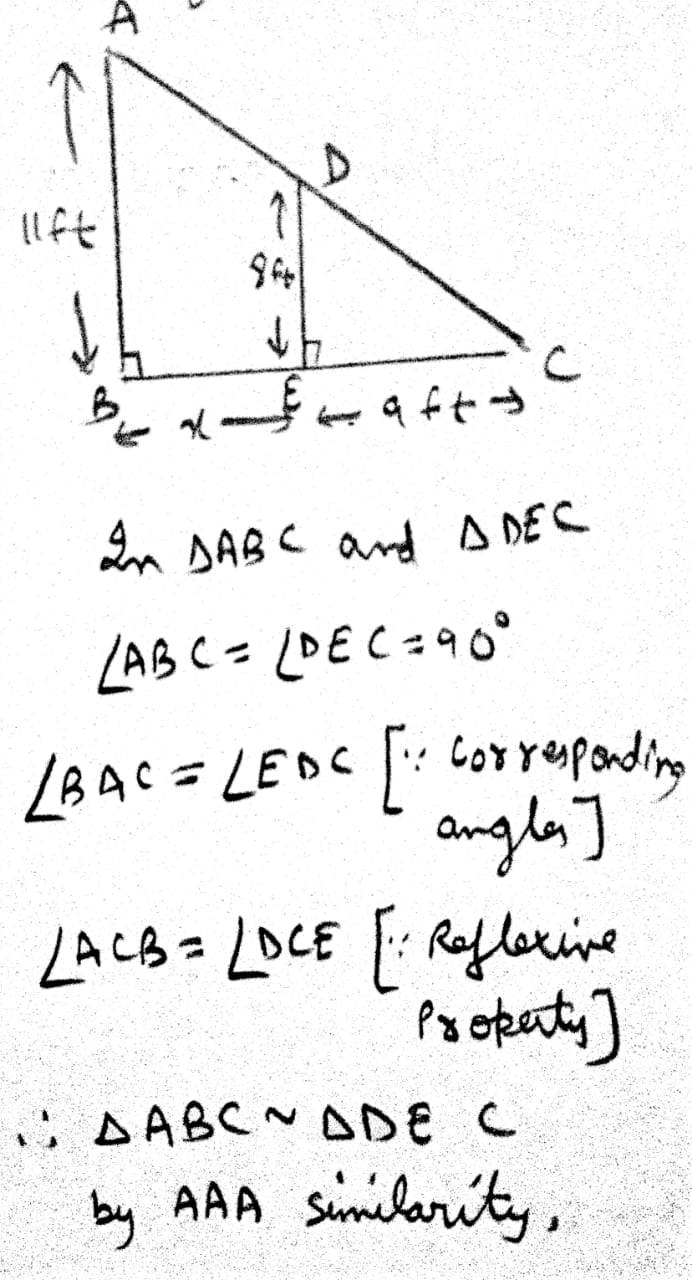 A
D
11ft
8ft
B
E
C
x
9 ft
In ΔABC and ΔDEC
∠ABC = ∠DEC = 90°
∠BAC = ∠EDC [∵ Corresponding
angles]
∠ACB = ∠DCE [∵ Reflexive
Property]
∴ ΔABC ~ ΔDEC
by AAA similarity.